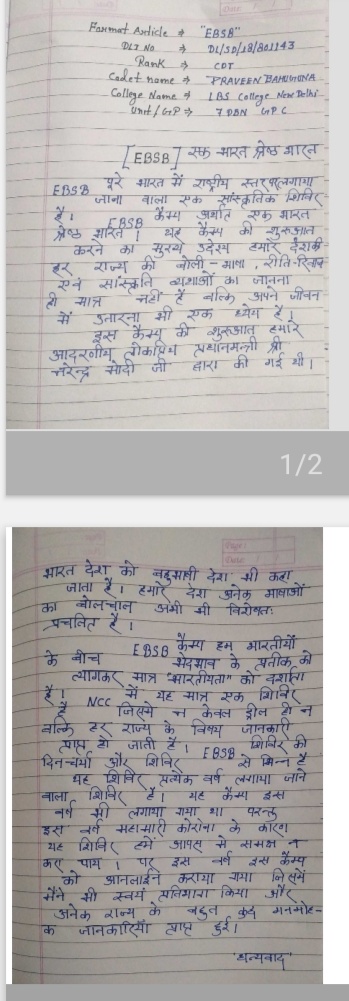 Format Article ⇒ "EBSB"
DLI NO ⇒ DL/SD/18/801143
Rank ⇒ CDT
Cadet name ⇒ PRAVEEN BAHUGUNA
College Name ⇒ LBS College New Delhi
Unit/GP ⇒ 7 DBN GP C
[EBSB] एक भारत श्रेष्ठ भारत
EBSB पूरे भारत में राष्ट्रीय स्तर पर लगाया
जाना वाला एक सांस्कृतिक शिविर
है। EBSB कैम्प अर्थात एक भारत
श्रेष्ठ भारत। यह कैम्प की शुरुआत
करने का मुख्य उद्देश्य हमारे देश के
हर राज्य की बोली-भाषा, रीति-रिवाज
एवं सांस्कृति का जानना
ही मात्र नहीं है बल्कि अपने जीवन
में उतारना भी एक ध्येय है।
इस कैम्प की शुरुआत हमारे
आदरणीय लोकप्रिय प्रधानमन्त्री श्री
नरेन्द्र मोदी जी द्वारा की गई थी।
1/2
भारत देश को बहुभाषी देश भी कहा
जाता है। हमारे देश अनेक भाषाओं
का बोलचाल अभी भी विशेषतः
प्रचलित है।
EBSB कैम्प हम भारतीयों
के बीच भेदभाव के प्रतीक को
त्यागकर मात्र "भारतीयता" को दर्शाता
है। NCC में यह मात्र एक शिविर
है जिसमे न केवल ड्रील ही न
बल्कि हर राज्य के विषय जानकारी
प्राप्त हो जाती है। EBSB शिविर की
दिनचर्या और शिविर से भिन्न है
यह शिविर प्रत्येक वर्ष लगाया जाने
वाला शिविर है। यह कैम्प इस
वर्ष भी लगाया गया था परन्तु
इस वर्ष महामारी कोरोना के कारण
यह शिविर हमें आपस से समक्ष न
कर पाय। पर इस वर्ष इस कैम्प
को आनलाईन कराया गया जिसमें
मैने भी स्वयं प्रतिभाग किया और
अनेक राज्य के बहुत कुछ मनमोह-
क जानकारियाँ प्राप्त हुई।
"धन्यवाद"